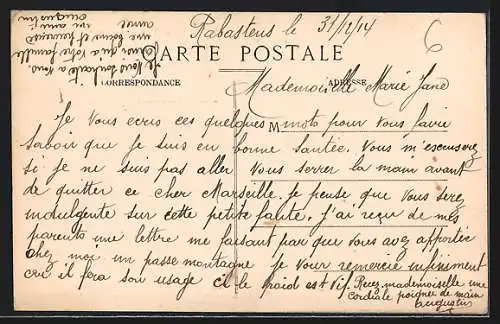 Rabastens le 31/12/14
Je vous souhaite a vous
ainsi qu'a votre famille
une bonne et heureuse
année un ami
augustin
CARTE POSTALE
CORRESPONDANCE
ADRESSE
Mademoiselle Marie Jane
Je vous ecris ces quelques moto pour vous favie
M
savoir que je suis en bonne santée. Vous m'escuserez
si je ne suis pas aller vous serrer la main avant
de quitter ce cher Marseille. je pense que vous serez
indulgente sur cette petite faute. J'ai reçu de mes
parents une lettre me faisant par que vous avez apportée
chez moi un passe montagne je vous remercie infiniment
car il fera son usage ci le froid est vif. Recez mademoiselle une
cordiale poignée de main
augustin